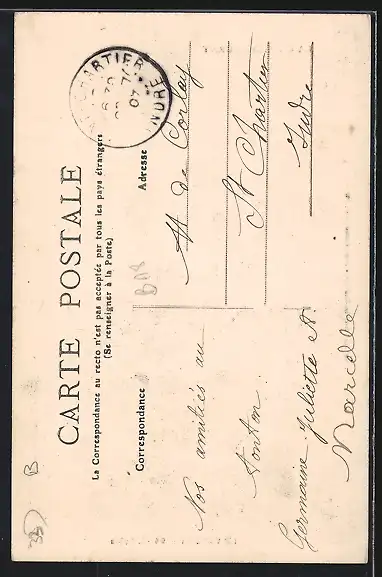 CARTE POSTALE
La Correspondance au recto n'est pas acceptée par tous les pays étrangers
(Se renseigner à la Poste)
Correspondance
Adresse
Nos amitiés au
tonton
Germaine Juliette et
Marcelle
M de Corlay
St Chartier
Indre
CHARTIER
INDRE
07
B